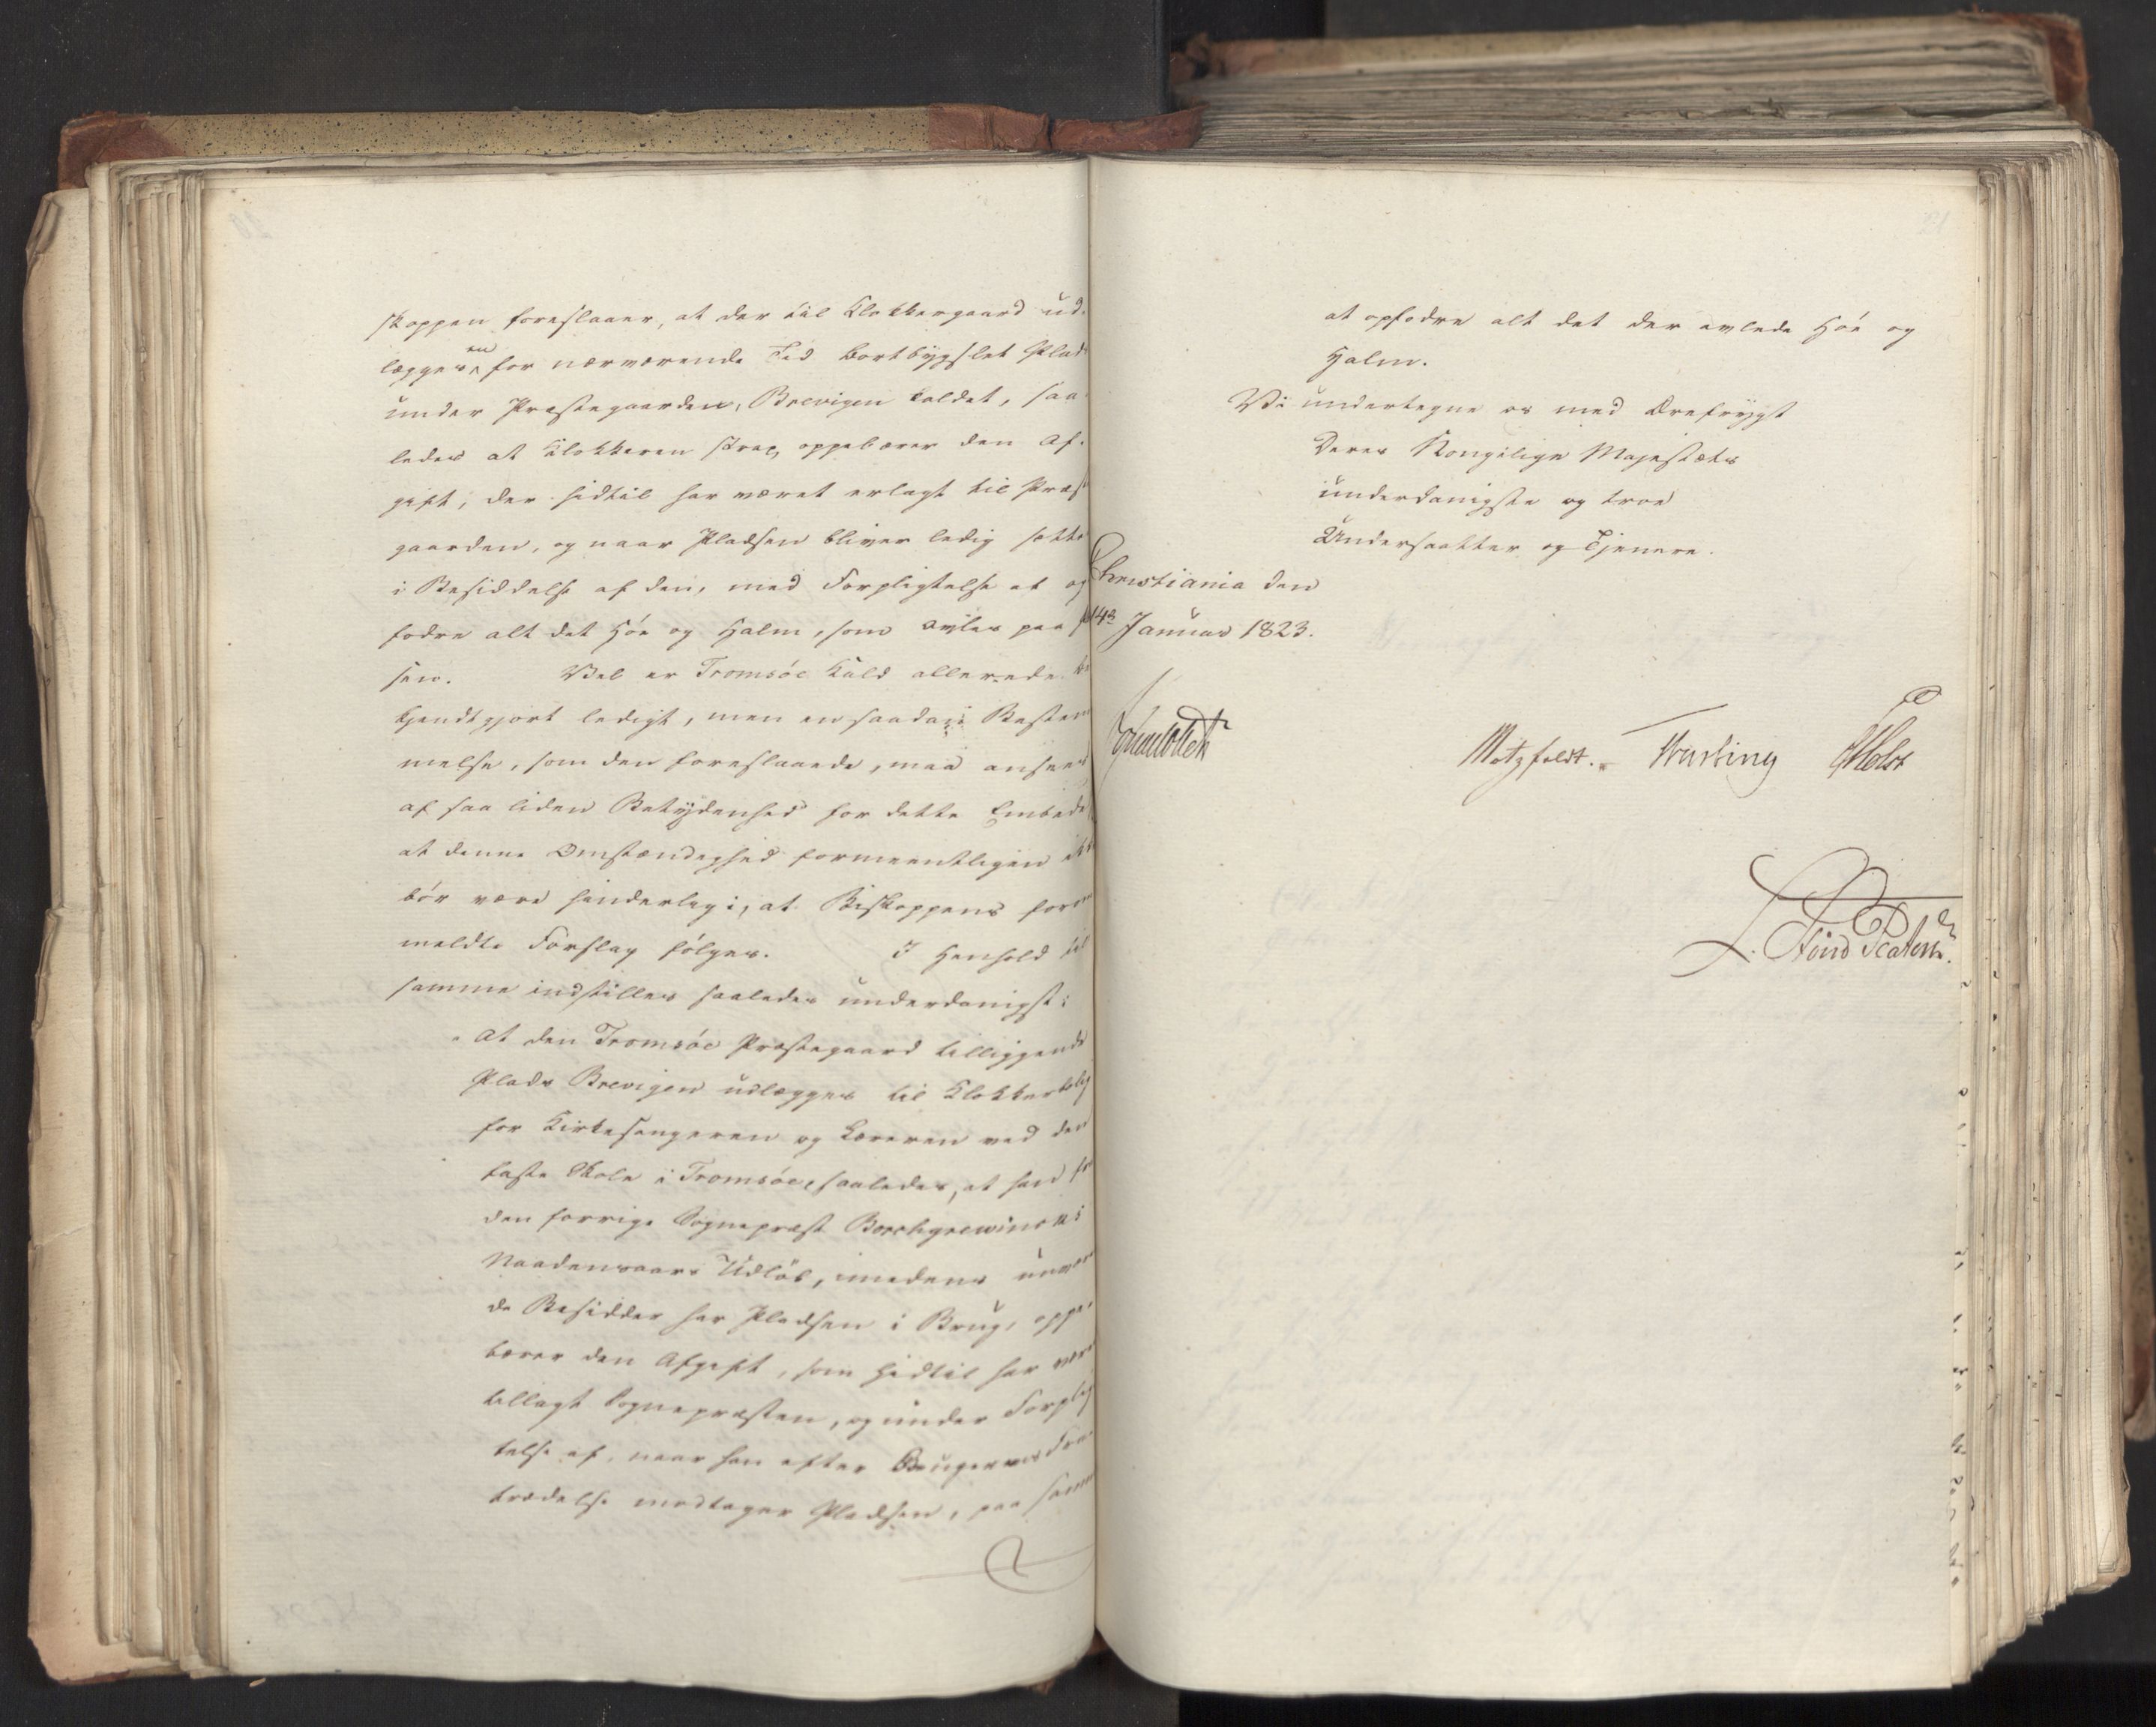 skoppen foreslaaer, at der til Klokkergaard ud-
lægges en for nærværende Tid bortbygslet Plads
under Præstegaarden, Brevigen kaldet, saa-
ledes at Klokkeren strax oppebærer den Af-
gift, der hidtil har været erlagt til Præste
gaarden, og naar Pladsen bliver ledig sættes
i Besiddelse af den, med Forpligtelse at op
fodre alt det Höe og Halm, som avles paa
sen. Vel er Tromsöe Kald allerede be
kjendtgjort ledigt, men en saadan Bestem
melse, som den foreslaaede, maa ansees
af saa liden Betydenhed for dette Embede
at denne Omstændighed formeentligen ikke
bör være hinderlig i, at Biskoppens foran
meldte Forslag fölges. I Henhold til
samme indstilles saaledes underdanigst:
"At den Tromsöe Præstegaard tilliggende
Plads Brevigen udlægges til Klokkerbolig
for Kirkesangeren og Læreren ved den
faste Skole i Tromsöe, saaledes, at han fra
den forrige Sognepræst Borchgrewincks
Naadensaars Udlöb, imedens nuværen
de Besidder har Pladsen i Brug, oppe-
bærer den Afgift, som hidtil har været
tillagt Sognepræsten, og under Forplig
telse af, naar han efter Brugerens Fra-
trædelse modtager Pladsen, paa samme
at opfodre alt det der avlede Höe og
Halm.
Vi undertegne os med Ærefrygt
Deres Kongelige Majestæts
underdanigste og troe
Undersaatter og Tjenere.
Christiania den
14de Januar 1823.
Motzfeldt. Holst